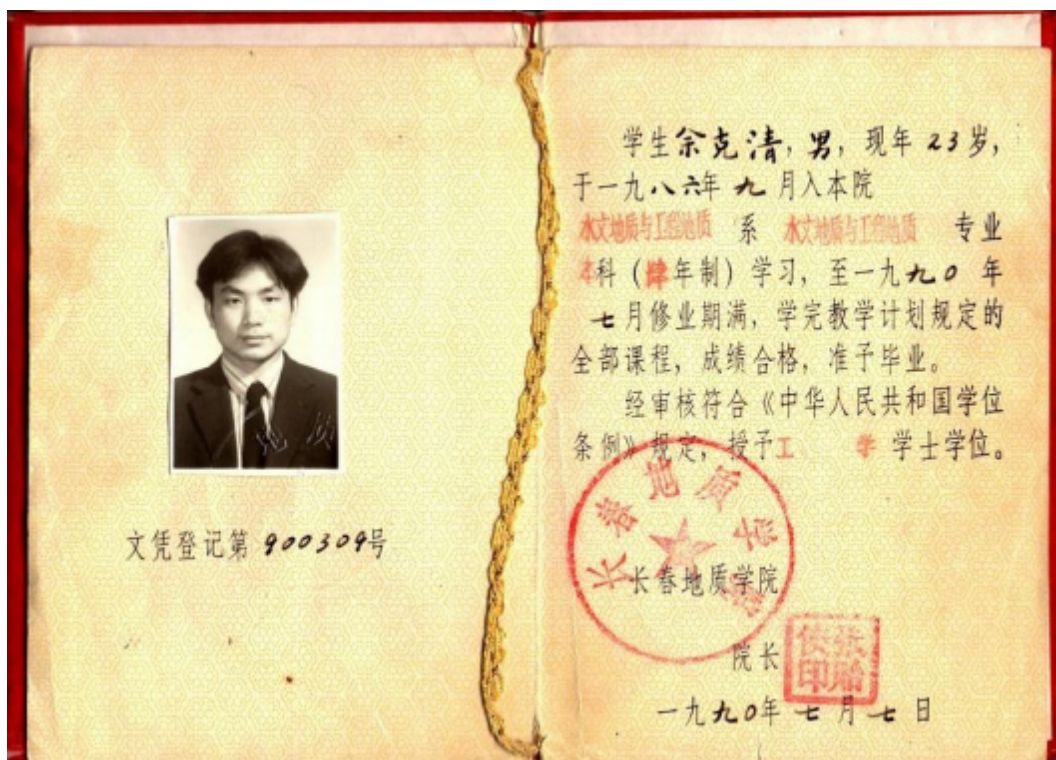 文凭登记第900309号
学生余克清，男，现年23岁，
于一九八六年九月入本院
水文地质与工程地质 系 水文地质与工程地质 专业
本科（肆年制）学习，至一九九0年
七月修业期满，学完教学计划规定的
全部课程，成绩合格，准予毕业。
经审核符合《中华人民共和国学位
条例》规定，授予工 学 学士学位。
长春地质学院
长春地质学院
院长
张贻侠印
一九九0年七月七日